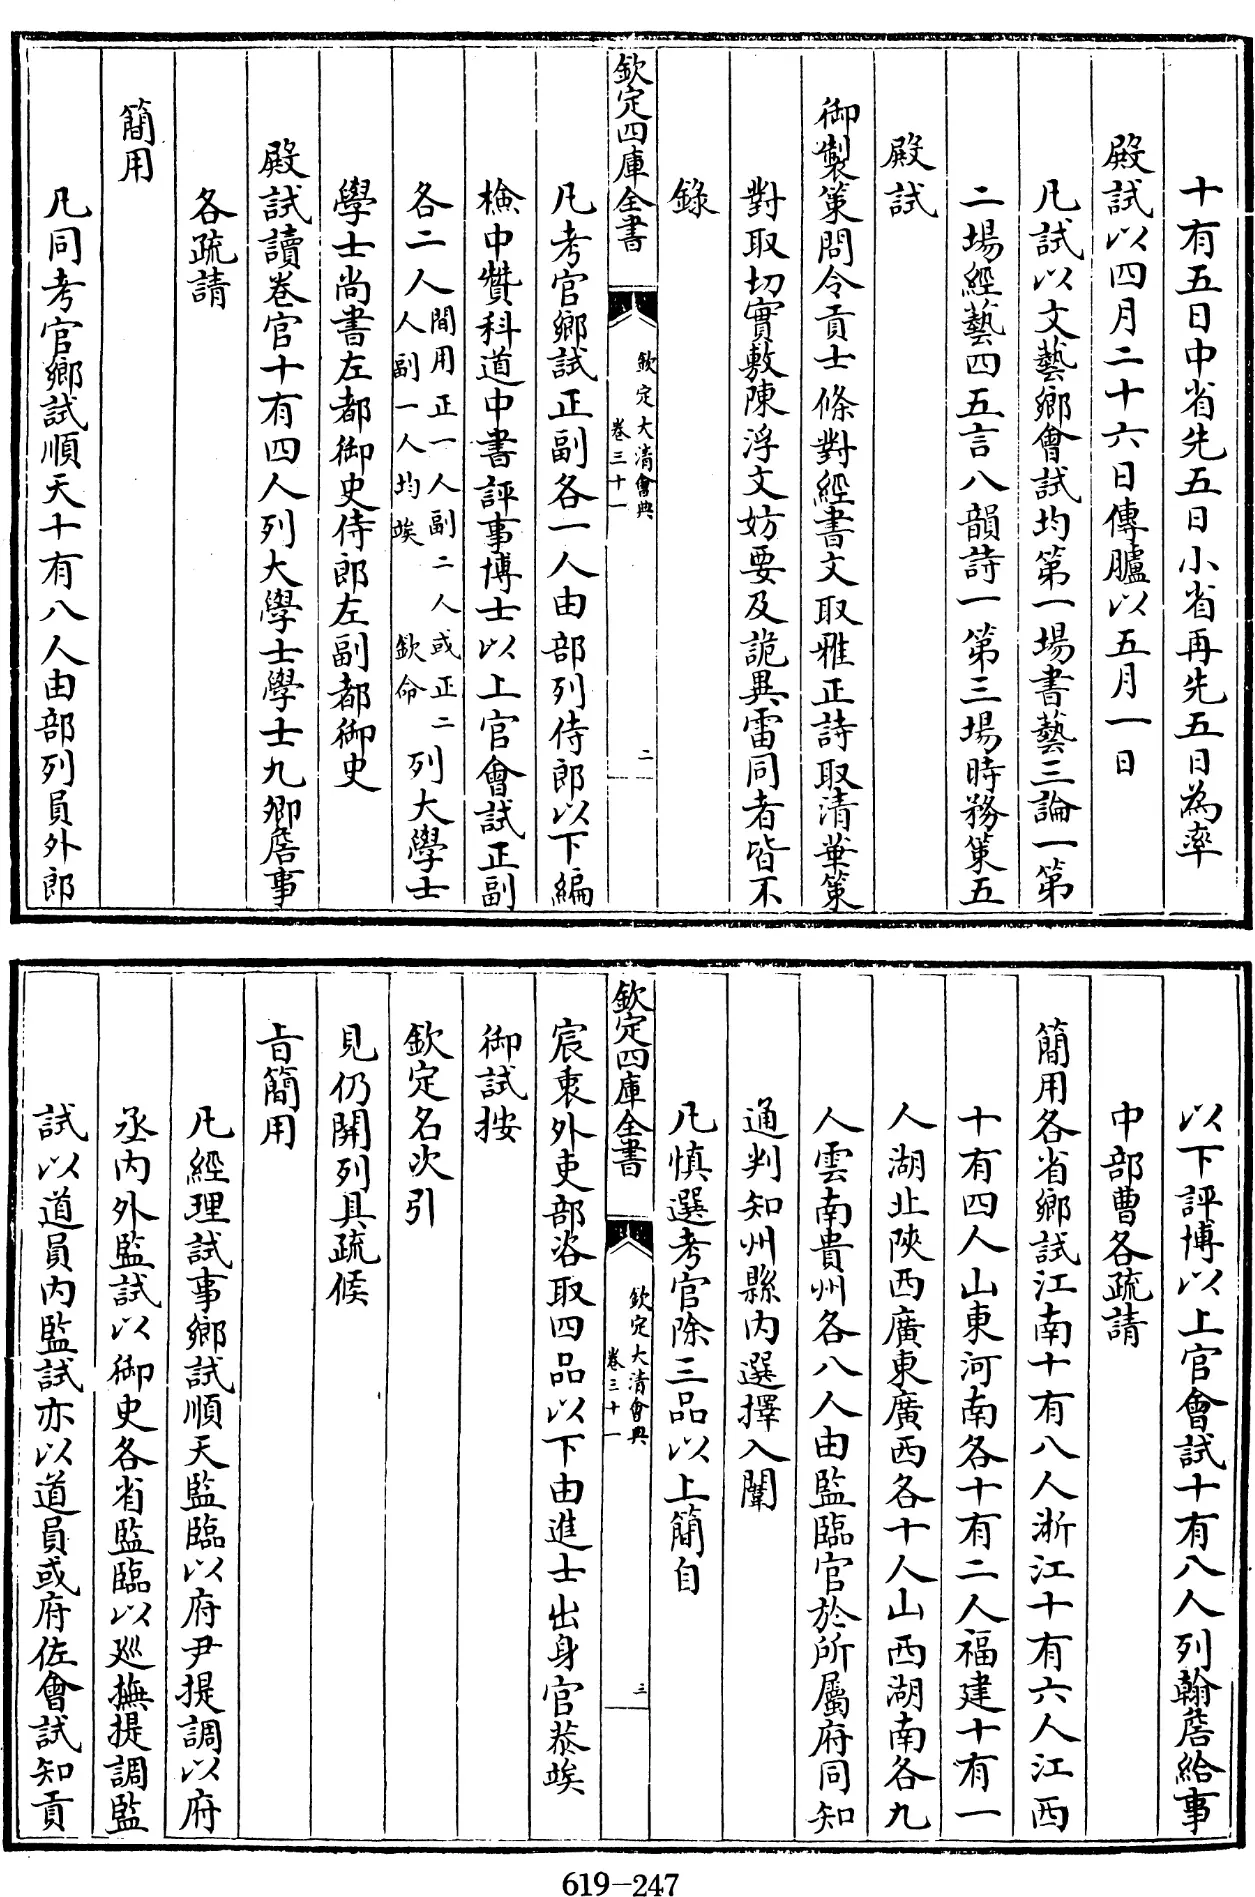 十有五日中省先五日小省再先五日為率
殿試以四月二十六日傳臚以五月一日
凡試以文藝鄉會試均第一場書藝三論一第
二場經藝四五言八韻詩一第三場時務策五
殿試
御製策問令貢士條對經書文取雅正詩取清華策
對取切實敷陳浮文妨要及詭異雷同者皆不
錄
欽定四庫全書
欽定大清會典
卷三十一
二
凡考官鄉試正副各一人由部列侍郎以下編
檢中贊科道中書評事博士以上官會試正副
各二人間用正一人副二人或正二人副一人均竢欽命列大學士
學士尚書左都御史侍郎左副都御史
殿試讀卷官十有四人列大學士學士九卿詹事
各疏請
簡用
凡同考官鄉試順天十有八人由部列員外郎
以下評博以上官會試十有八人列翰詹給事
中部曹各疏請
簡用各省鄉試江南十有八人浙江十有六人江西
十有四人山東河南各十有二人福建十有一
人湖北陝西廣東廣西各十人山西湖南各九
人雲南貴州各八人由監臨官於所屬府同知
通判知州縣內選擇入闈
凡慎選考官除三品以上簡自
欽定四庫全書
欽定大清會典
卷三十一
三
宸衷外吏部咨取四品以下由進士出身官恭竢
御試按
欽定名次引
見仍開列具疏候
旨簡用
凡經理試事鄉試順天監臨以府尹提調以府
丞內外監試以御史各省監臨以巡撫提調監
試以道員內監試亦以道員或府佐會試知貢
619-247